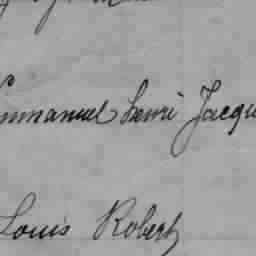 Emmanuel henri Jacqu
Louis Robert